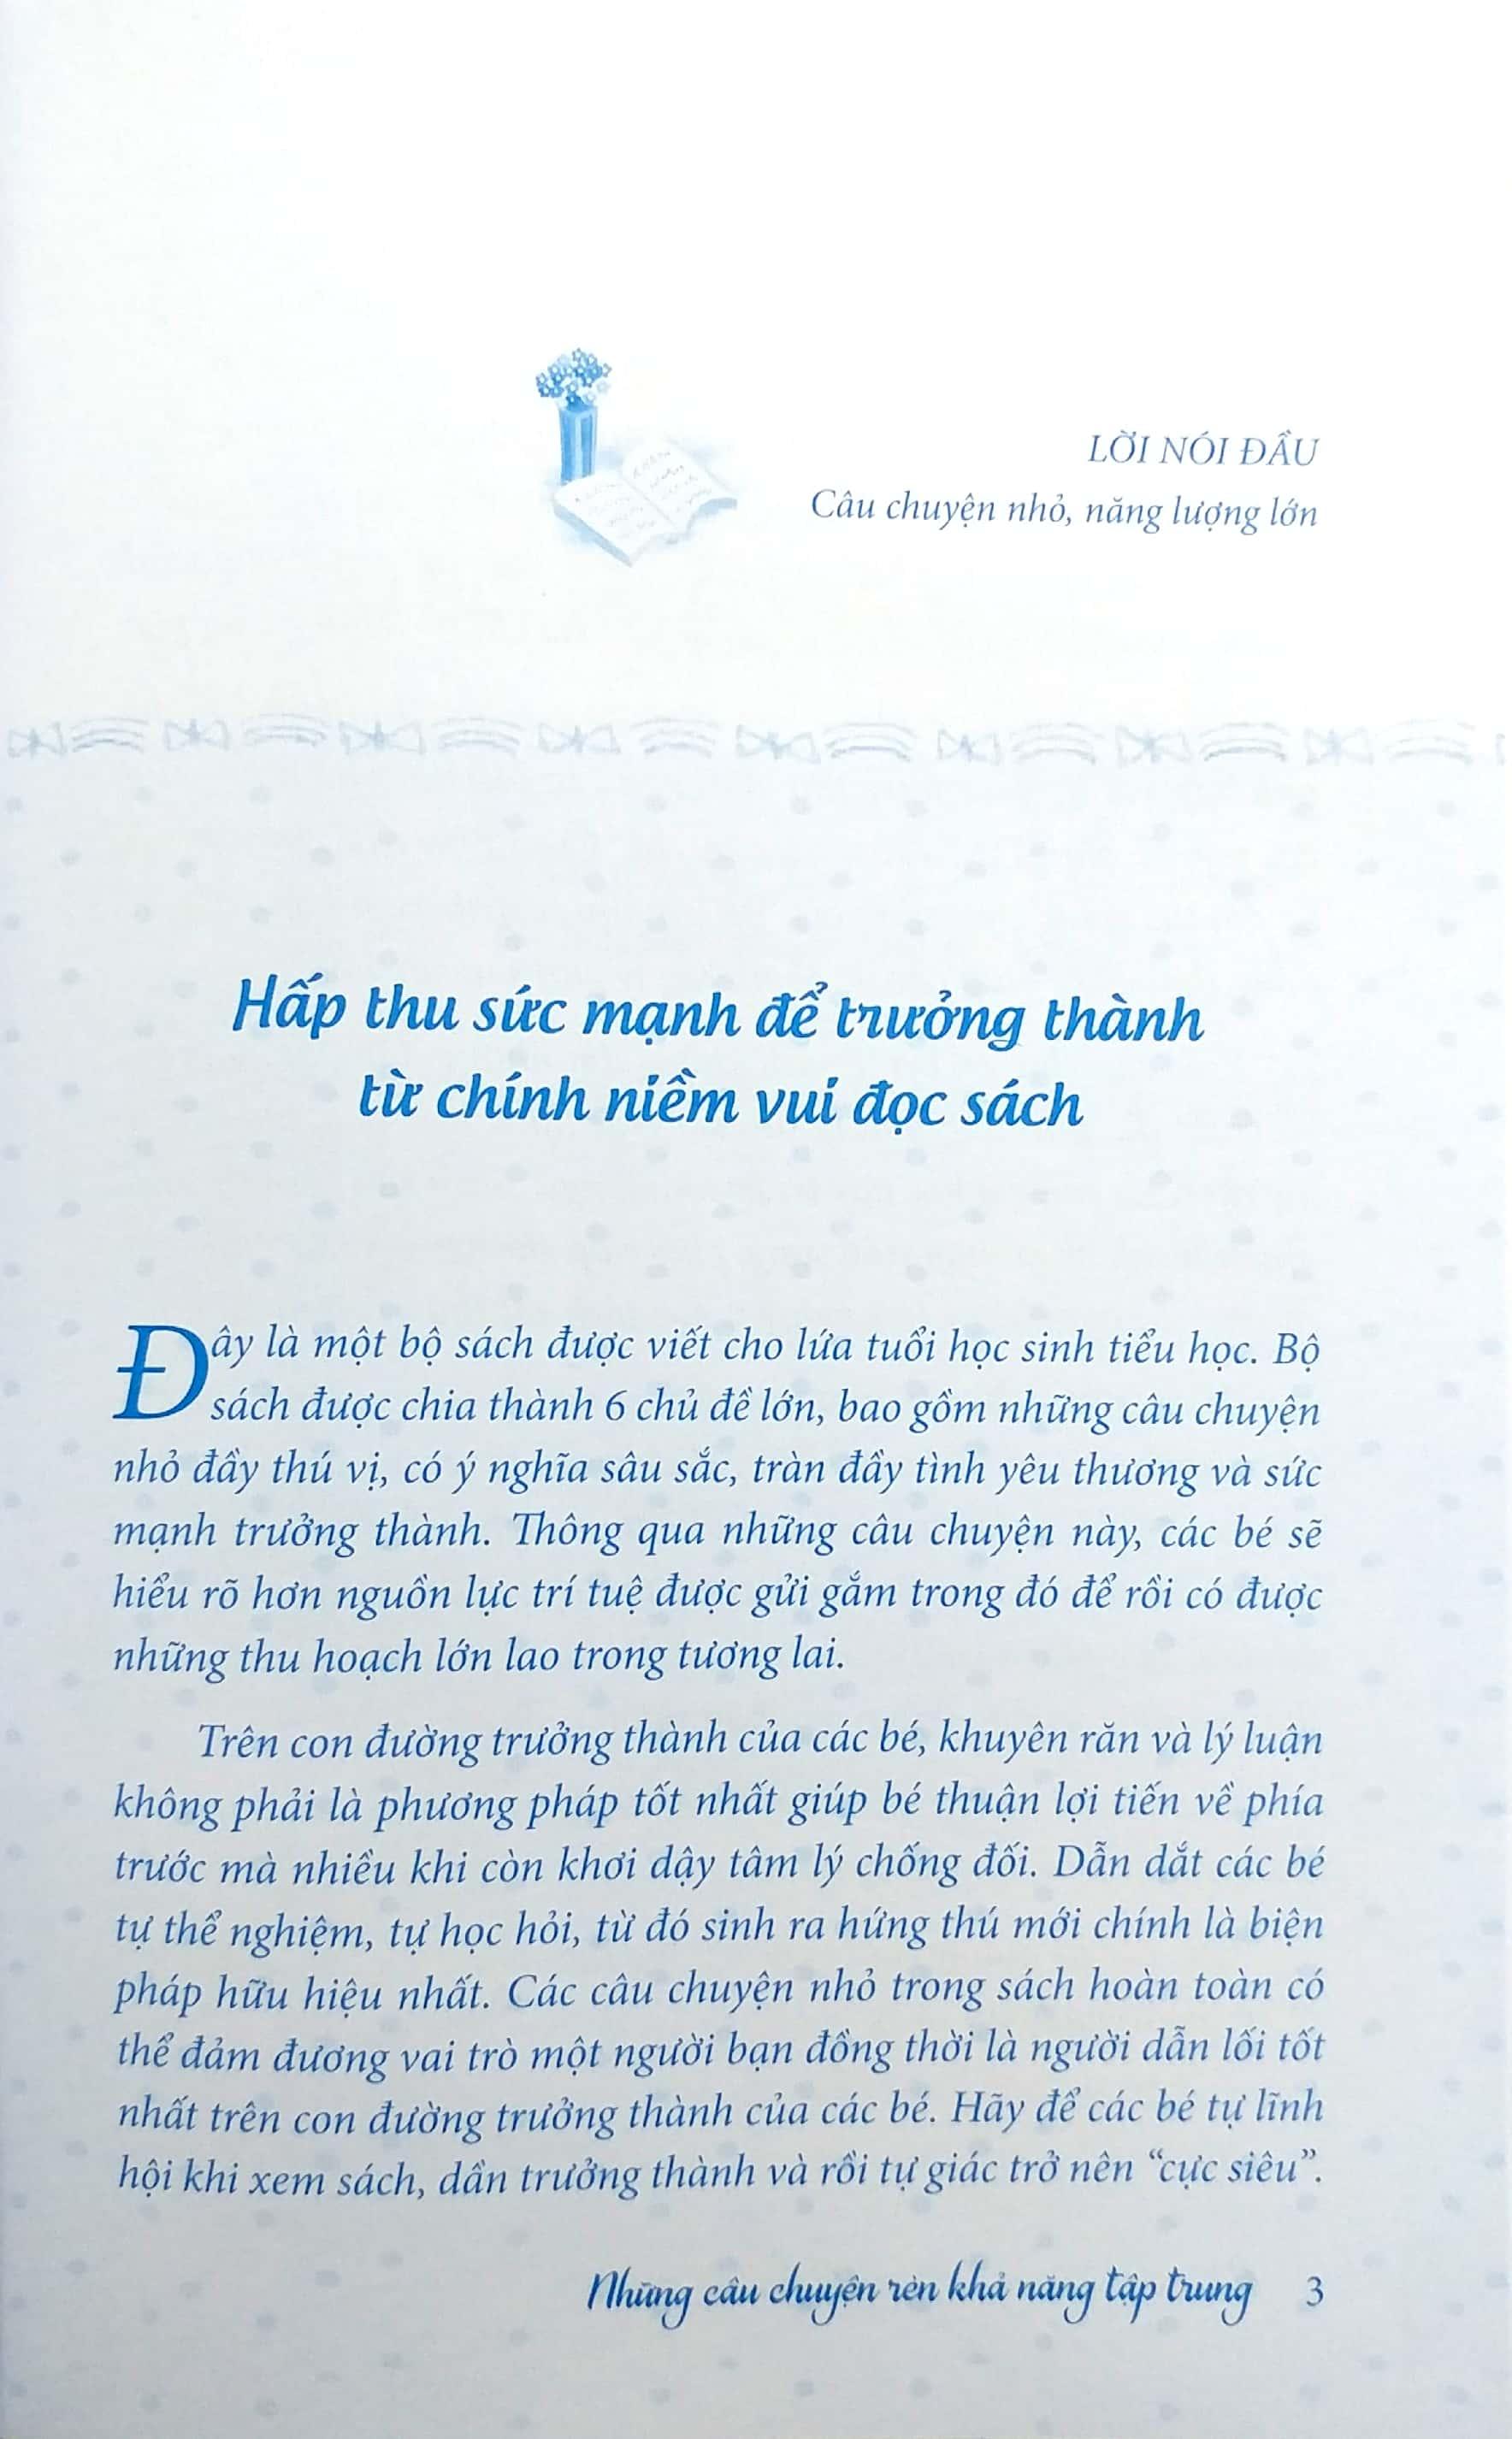 LỜI NÓI ĐẦU
Câu chuyện nhỏ, năng lượng lớn
Hấp thu sức mạnh để trưởng thành
từ chính niềm vui đọc sách
Đây là một bộ sách được viết cho lứa tuổi học sinh tiểu học. Bộ
sách được chia thành 6 chủ đề lớn, bao gồm những câu chuyện
nhỏ đầy thú vị, có ý nghĩa sâu sắc, tràn đầy tình yêu thương và sức
mạnh trưởng thành. Thông qua những câu chuyện này, các bé sẽ
hiểu rõ hơn nguồn lực trí tuệ được gửi gắm trong đó để rồi có được
những thu hoạch lớn lao trong tương lai.
Trên con đường trưởng thành của các bé, khuyên răn và lý luận
không phải là phương pháp tốt nhất giúp bé thuận lợi tiến về phía
trước mà nhiều khi còn khơi dậy tâm lý chống đối. Dẫn dắt các bé
tự thể nghiệm, tự học hỏi, từ đó sinh ra hứng thú mới chính là biện
pháp hữu hiệu nhất. Các câu chuyện nhỏ trong sách hoàn toàn có
thể đảm đương vai trò một người bạn đồng thời là người dẫn lối tốt
nhất trên con đường trưởng thành của các bé. Hãy để các bé tự lĩnh
hội khi xem sách, dần trưởng thành và rồi tự giác trở nên “cực siêu”.
Những câu chuyện rèn khả năng tập trung 3